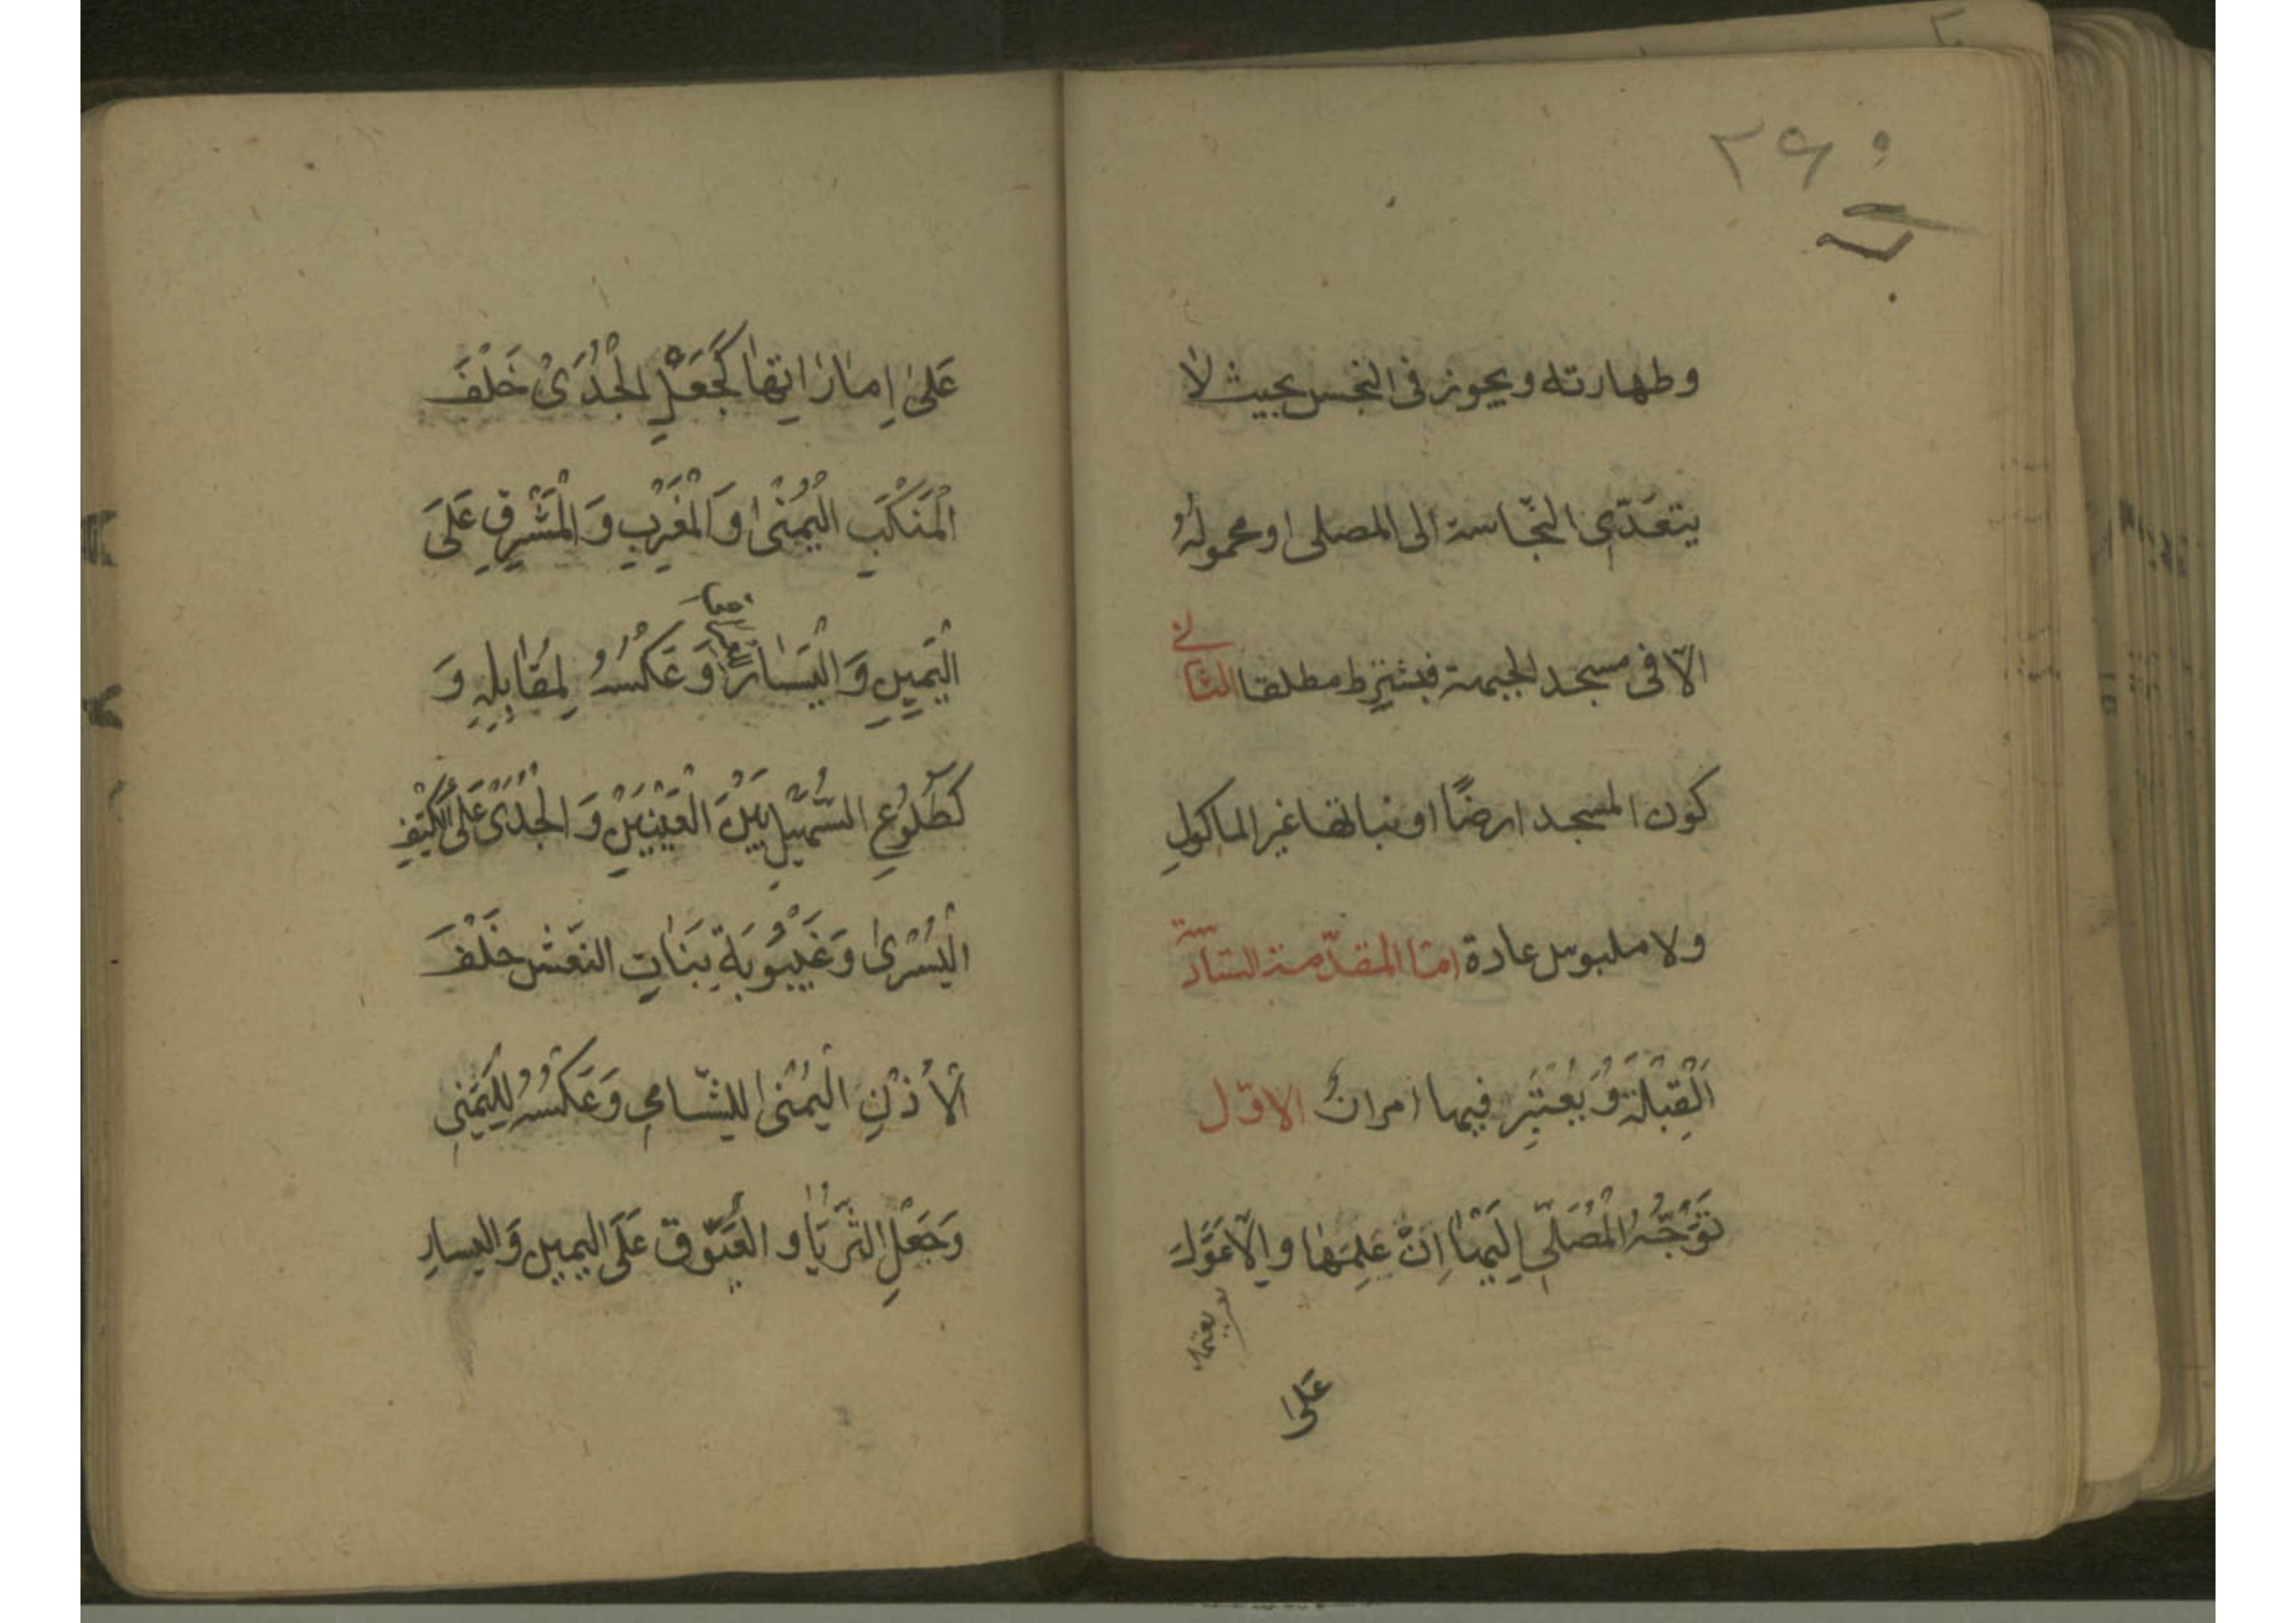 ۲۶۰
وطهارته ويجوز فى النجس بحيث لا
يتعدّى النجاسة الى المصلى او محمولهُ
الّا فى مسجد الجبهة فيشترط مطلقا الثانى
كون المسجد ارضًا او نباتها غير الماكولِ
ولا ملبوس عادة امّا المقدّمة السّادسة
اَلْقِبْلَةُ وَيُعْتَبَرُ فيها امران الاوّل
تَوَجُّهُ الْمُصَلّى اِلَيْهٰا اِنْ عَلِمَهٰا واِلّا عَوَّلَ
يعتمد
عَلىٰ
عَلىٰ اِمٰارٰاتِهٰا كَجَعْلِ الْجُدَىْ خَلْفَ
الْمَنْكَبِ الْيُمْنٰى وَالْمَغْرِبِ وَالْمَشْرِقِ عَلىَ
الْيَمِيِنِ وَالْيَسٰارِ وَعَكْسُهُ لِمُقٰابِلِهِ وَ
كَطُلُوُعِ السُّهَيْلِ بَيْنَ الْعَيْنَيْنِ وَالْجُدَىْ عَلَى الْكَتِفِ
الْيُسْرىٰ وَغَيْبُوُبَةِ بَنٰاتِ النَعْش خَلْفَ
الْاُذْنِ الْيُمْنٰى لِلشّامى وَعَكْسُهُ لِلْيَمَنِى
وَجَعْلِ الثُّرَيّٰا و الْعَيُّوق عَلَى اليمين وَاليسارِ